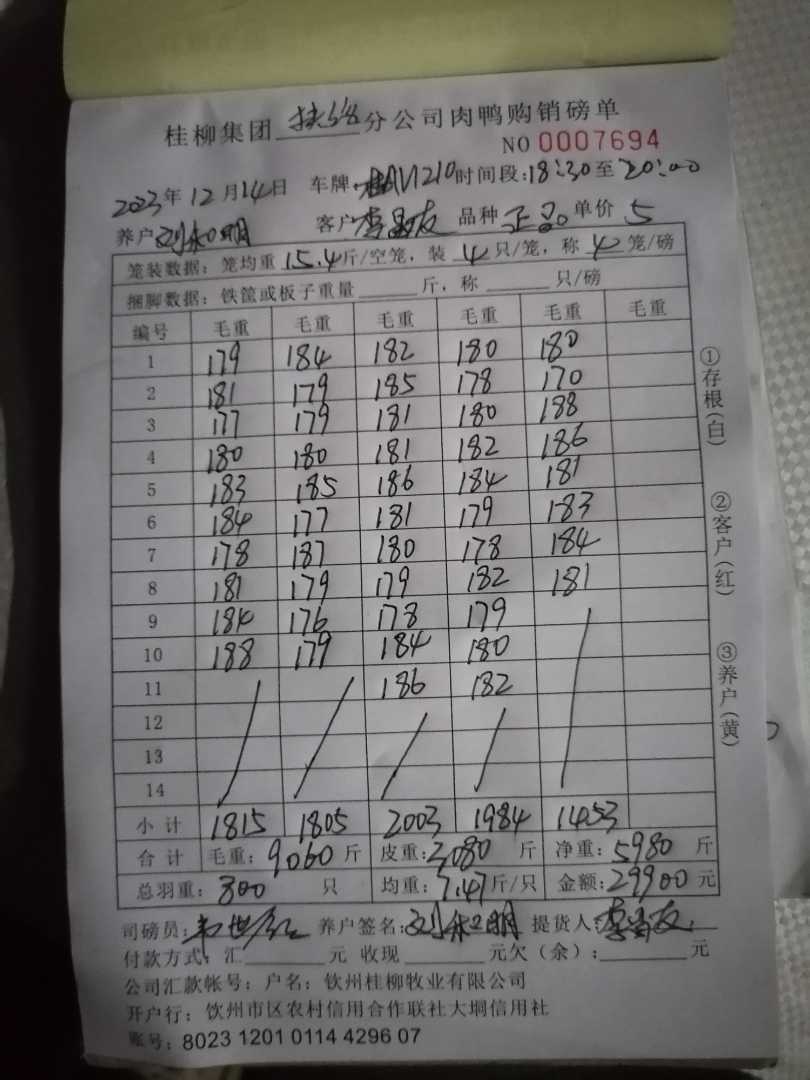 桂柳集团扶绥分公司肉鸭购销磅单
NO 0007694
2023年12月14日 车牌 1210 时间段:18:30至20:00
养户 刘和明 客户 李昌友 品种 正品 单价 5
笼装数据：笼均重 15.4 斤/空笼，装 4 只/笼，称 4 笼/磅
捆脚数据：铁筐或板子重量____斤，称____只/磅
编号 毛重 毛重 毛重 毛重 毛重 毛重
1 179 184 182 180 180
2 181 179 185 178 170
3 177 179 181 180 188
4 180 180 181 182 186
5 183 185 186 184 181
6 184 177 181 179 183
7 178 187 180 178 184
8 181 179 179 182 181
9 184 176 178 179
10 188 179 184 180
11 186 182
12
13
14
小计 1815 1805 2003 1984 1453
合计 毛重:9060斤 皮重:3080斤 净重:5980斤
总羽重:800只 均重:7.47斤/只 金额:29900元
司磅员: 养户签名:刘和明 提货人:李昌友
付款方式:汇____元 收现____元欠（余）:____元
公司汇款帐号：户名：钦州桂柳牧业有限公司
开户行：钦州市区农村信用合作联社大垌信用社
账号：8023 1201 0114 4296 07
①存根(白)
②客户(红)
③养户(黄)